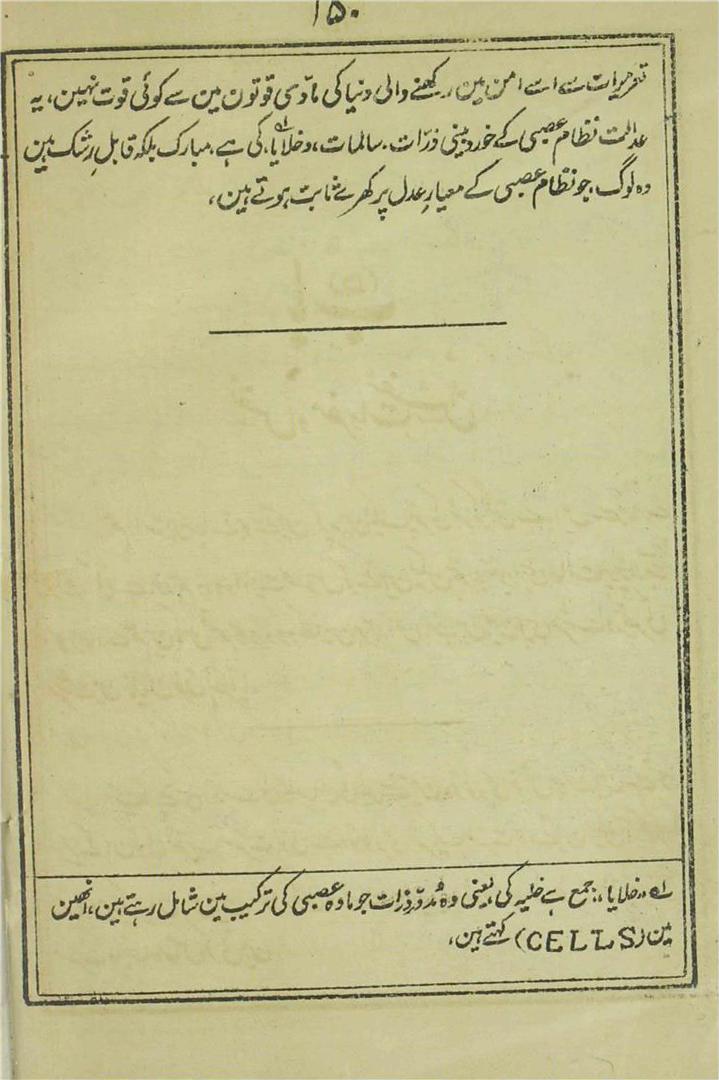 ۱۵۰
تعزیرات سے اسے امن مین رکھنے والی دنیا کی مادّی قوتون مین سے کوئی قوت نہین، یہ
عدالت نظام عصبی کے خوردبینی ذرّات، سالمات، و خلایا، کی ہے، مبارک بلکہ قابلِ رشک ہین
وہ لوگ، جو نظام عصبی کے معیارِ عدل پر کھرے ثابت ہوتے ہین،
لہ "خلایا"، جمع ہے خلیہ کی، یعنی وہ مُدوّر ذرات جو مادہ عصبی کی ترکیب مین شامل رہتے ہین، انھین
مین (CELLS) کہتے ہین،